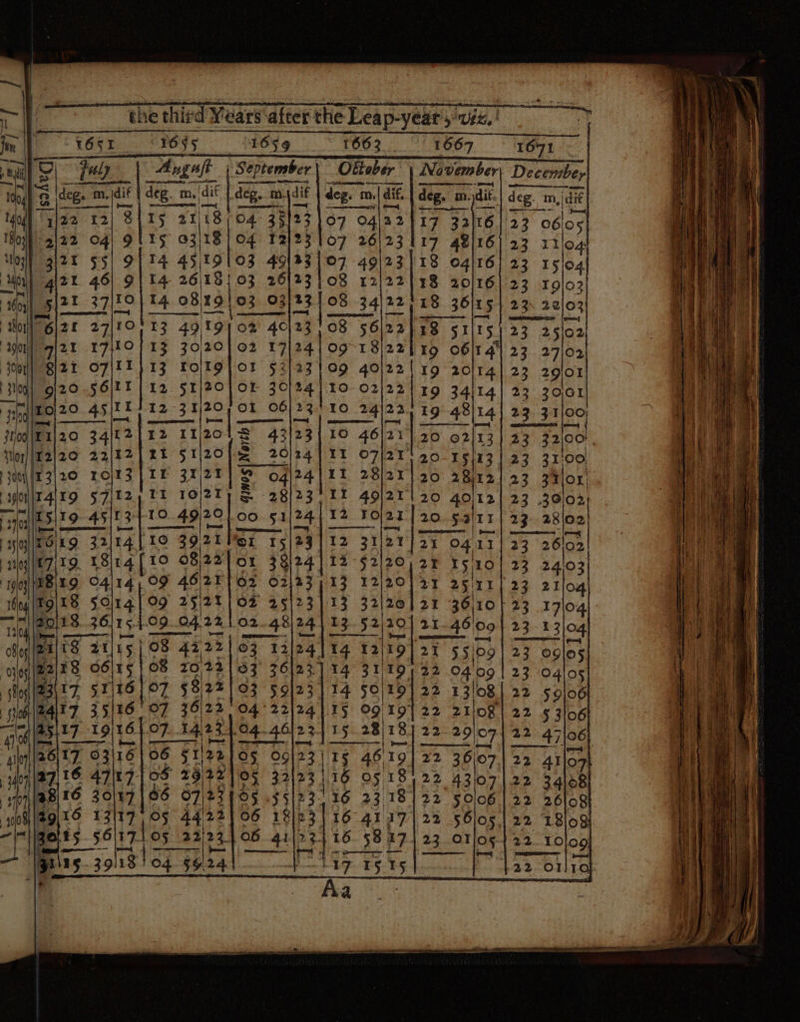 the third Years after the Leap-year, viz.
1651 1655 1659 1663 1667 1671
Dayes July August September October November December
deg. m. dif deg. m. dif deg. m. dif deg. m. dif. deg. m. dif. deg. m, dif
1 22 12 8 15 21 18 04 35 23 07 04 22 17 32 16 23 06 05
2 22 04 9 15 03 18 04 12 23 07 26 23 17 48 16 23 11 04
3 21 55 9 14 45 19 03 49 23 07 49 23 18 04 16 23 15 04
4 21 46 9 14 26 18 03 26 23 08 12 22 18 20 16 23 19 03
5 21 37 10 14 08 19 03 03 23 08 34 22 18 36 15 23 22 03
6 21 27 10 13 49 19 02 40 23 08 56 22 18 51 15 23 25 02
7 21 17 10 13 30 20 02 17 24 09 18 22 19 06 14 23 27 02
8 21 07 11 13 10 19 01 53 23 09 40 22 19 20 14 23 29 01
9 20 56 11 12 51 20 01 30 24 10 02 22 19 34 14 23 30 01
10 20 45 11 12 31 20 01 06 23 10 24 22 19 48 14 23 31 00
11 20 34 12 12 11 20 43 23 10 46 21 20 02 13 23 32 00
12 20 22 12 11 51 20 North 20 24 11 07 21 20 15 13 23 31 00
13 20 10 13 11 31 21 South 04 24 11 28 21 20 28 12 23 31 01
14 19 57 12 11 10 21 28 23 11 49 21 20 40 12 23 30 02
15 19 45 13 10 49 20 00 51 24 12 10 21 20 52 11 23 28 02
16 19 32 14 10 39 21 01 15 23 12 31 21 21 04 11 23 26 02
17 19 18 14 10 08 22 01 38 24 12 52 20 21 15 10 23 24 03
18 19 04 14 09 46 21 02 02 23 13 12 20 21 25 11 23 21 04
19 18 50 14 09 25 21 02 25 23 13 32 20 21 36 10 23 17 04
20 18 36 15 09 04 22 02 48 24 13 52 20 21 46 09 23 13 04
21 18 21 15 08 42 22 03 12 24 14 12 19 21 55 09 23 09 05
22 18 06 15 08 20 22 03 36 23 14 31 19 22 04 09 23 04 05
23 17 51 16 07 58 22 03 59 23 14 50 19 22 13 08 22 59 06
24 17 35 16 07 36 22 04 22 24 15 09 19 22 21 08 22 53 06
25 17 19 16 07 14 23 04 46 23 15 28 18 22 29 07 22 47 06
26 17 03 16 06 51 22 05 09 23 15 46 19 22 36 07 22 41 07
27 16 47 17 06 29 22 05 32 23 16 05 18 22 43 07 22 34 08
28 16 30 17 06 07 23 05 55 23 16 23 18 22 50 06 22 26 08
29 16 13 17 05 44 22 06 18 23 16 41 17 22 56 05 22 18 08
30 15 56 17 05 22 23 06 41 23 16 58 17 23 01 05 22 10 09
31 15 39 18 04 59 24 17 15 15 22 01 10
Aa